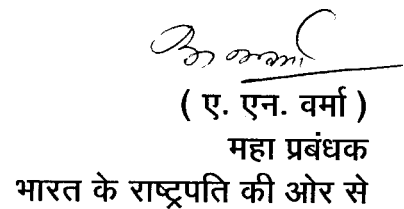 ( ए. एन. वर्मा )
महा प्रबंधक
भारत के राष्ट्रपति की ओर से